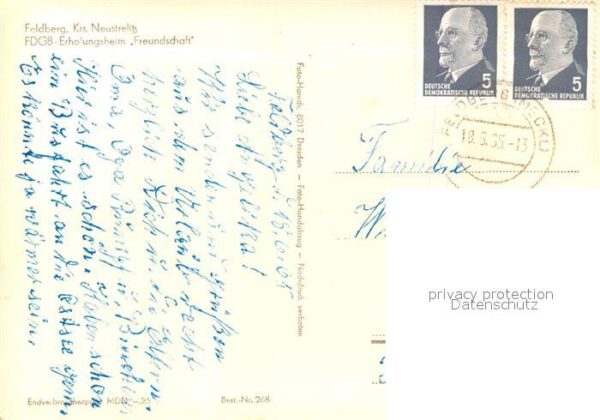 Feldberg, Krs. Neustrelitz
FDGB-Erholungsheim „Freundschaft"
Feldberg, d. 18.6.65
Liebe Angelika!
Wir senden Grüßen
aus dem Urlaub recht
herzlich Dich u. d. Eltern.
Oma, Opa
Hier ist es schön. Haben schon
eine Busfahrt an die Ostsee gem.
Es könnte ja wärmer sein.
Foto-Hands, 8017 Dresden — Foto-Handabzug — Nachdruck verboten
Endverbraucherpreis MDN -,25
Best.-Nr. 268
5
DEUTSCHE
DEMOKRATISCHE REPUBLIK
5
DEUTSCHE
DEMOKRATISCHE REPUBLIK
18.6.65-13
Familie
privacy protection
Datenschutz